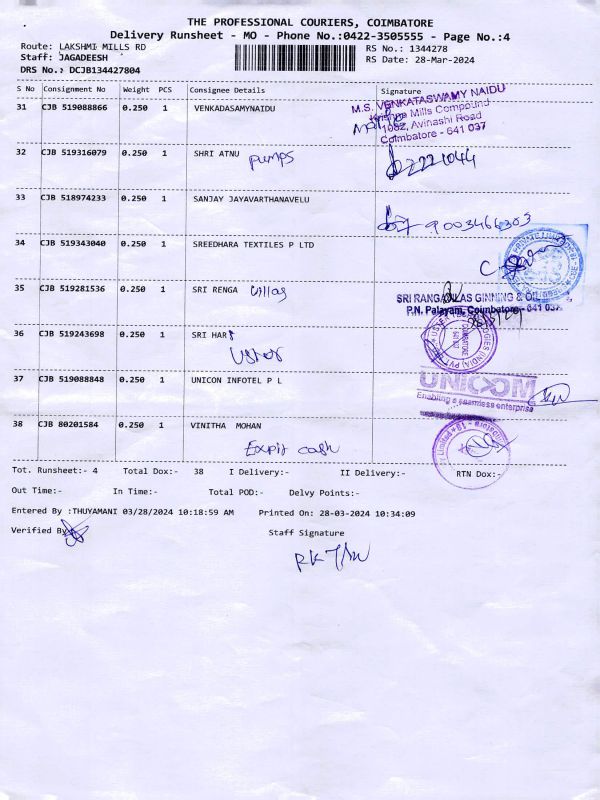 THE PROFESSIONAL COURIERS, COIMBATORE
Delivery Runsheet - MO - Phone No.:0422-3505555 - Page No.:4
Route: LAKSHMI MILLS RD RS No.: 1344278
Staff: JAGADEESH RS Date: 28-Mar-2024
DRS No.: DCJB134427804
S No Consignment No Weight PCS Consignee Details Signature
31 CJB 519088866 0.250 1 VENKADASAMYNAIDU
M.S. VENKATASWAMY NAIDU
Krishna Mills Compound
Avinashi Road
Coimbatore - 641 037
32 CJB 519316079 0.250 1 SHRI ATNU
pumps
33 CJB 518974233 0.250 1 SANJAY JAYAVARTHANAVELU
9003466303
34 CJB 519343040 0.250 1 SREEDHARA TEXTILES P LTD
35 CJB 519281536 0.250 1 SRI RENGA Villas
SRI RANGAVILAS GINNING & OIL
P.N. Palayam, Coimbatore - 641 037
36 CJB 519243698 0.250 1 SRI HARI
Uster
37 CJB 519088848 0.250 1 UNICON INFOTEL P L
UNICOM
Enabling a seamless enterprise
38 CJB 80201584 0.250 1 VINITHA MOHAN
cash
Tot. Runsheet:- 4 Total Dox:- 38 I Delivery:- II Delivery:- RTN Dox:-
Out Time:- In Time:- Total POD:- Delvy Points:-
Entered By :THUYAMANI 03/28/2024 10:18:59 AM Printed On: 28-03-2024 10:34:09
Verified By Staff Signature